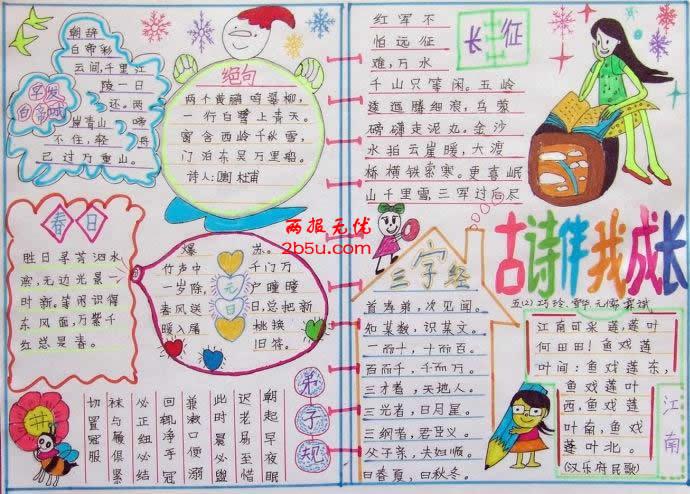 早发
白帝城
朝辞
白帝彩
云间,千里江
陵一日
还。两
岸青山
不住,轻舟
已过万重山。
绝句
两个黄鹂鸣翠柳,
一行白鹭上青天。
窗含西岭千秋雪,
门泊东吴万里船。
诗人:[唐]杜甫
春日
胜日寻芳泗水
滨,无边光景一
时新,等闲识得
东风面,万紫千
红总是春。
元日
爆
竹声中
一岁除,
春风送
暖入屠
苏。
千门万
户曈曈
日,总把新
桃换
旧符。
弟子规
朝起早夜眠
老易至惜
此时晨必盥
兼漱口便溺
回辄净手冠
必正纽必结
袜与履俱紧
切置冠服
两报无忧
2b5u.com
长征
红军不
怕远征
难,万水
千山只等闲。五岭
逶迤腾细浪,乌蒙
磅礴走泥丸。金沙
水拍云崖暖,大渡
桥横铁索寒。更喜岷
山千里雪,三军过后尽
古诗伴我成长
三字经
首孝弟,次见闻。
知某数,识某文。
一而十,十而百。
百而千,千而万。
三才者,天地人。
三光者,日月星。
三纲者,君臣义。
父子亲,夫妇顺。
曰春夏,曰秋冬。
江南
江南可采莲,莲叶
何田田!鱼戏莲
叶间:鱼戏莲东,
鱼戏莲叶
西,鱼戏莲
叶南,鱼戏
莲叶北。
(汉乐府民歌)